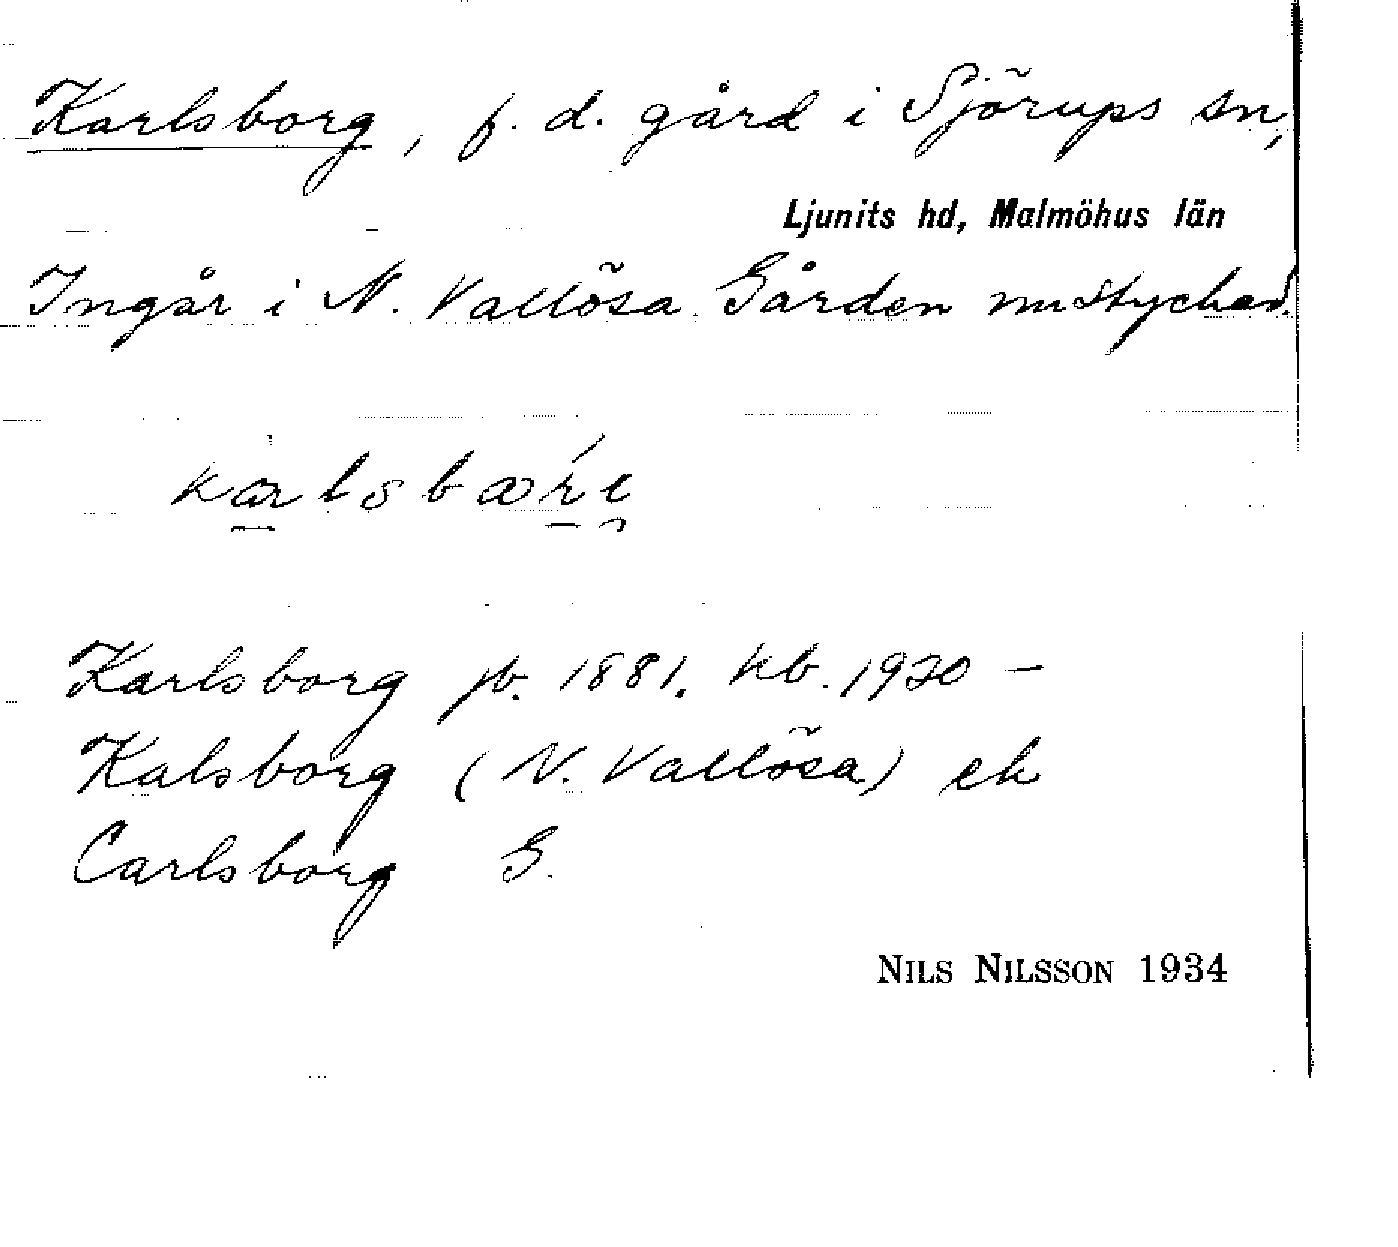 Karlsborg, f. d. gård i Sjörups sn,
Ljunits hd, Malmöhus län
Ingår i N. Vallösa. Gården nu styckad.
Karlsborg jb. 1881. kb. 1920 –
Kalsborg (N. Vallösa) ek
Carlsborg G.
NILS NILSSON 1934